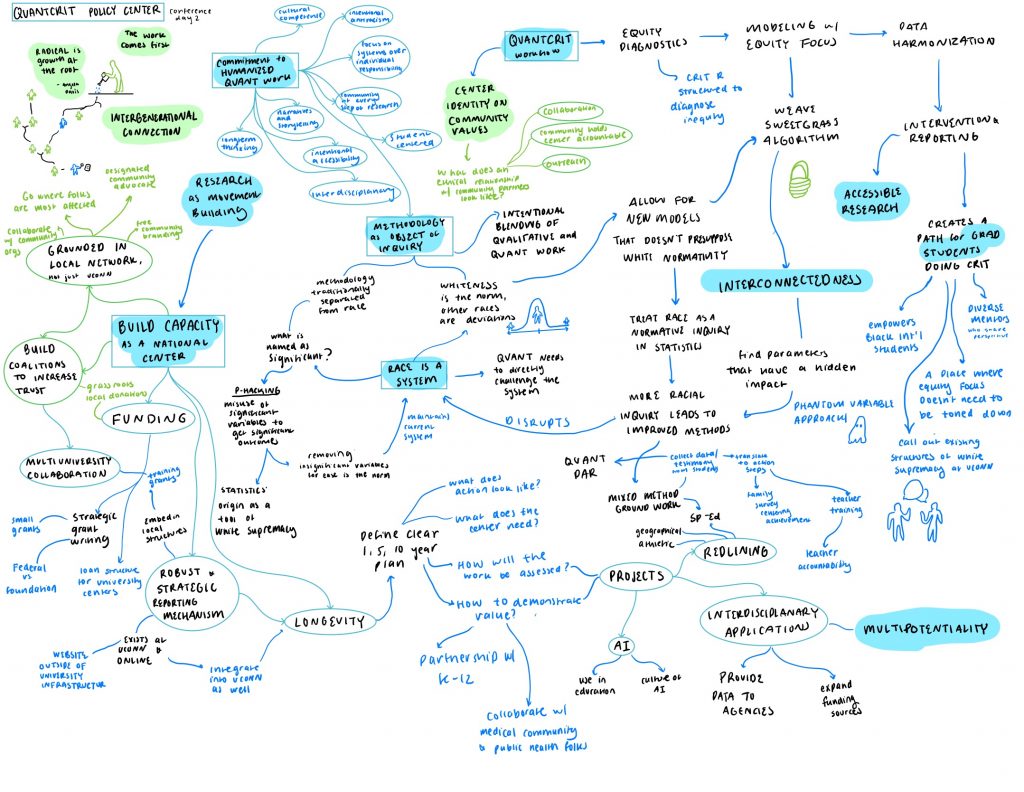 QUANTCRIT POLICY CENTER
conference
day 2
RADICAL IS
growth at
the root
- angela
davis
THE WORK
comes first
INTERGENERATIONAL
CONNECTION
Commitment to
HUMANIZED
QUANT WORK
cultural
competence
intentional
antiracism
focus on
systems over
individual
responsibility
community
at every
step of research
student
centered
narratives
and
storytelling
intentional
accessibility
longterm
thinking
interdisciplinary
QUANTCRIT
workflow
EQUITY
DIAGNOSTICS
CRIT R
structured to
diagnose
inequity
MODELING W/
EQUITY FOCUS
DATA
HARMONIZATION
CENTER
IDENTITY ON
COMMUNITY
VALUES
collaboration
community holds
center accountable
outreach
What does an
ethical relationship
w/ community partners
look like?
WEAVE
SWEETGRASS
ALGORITHM
INTERVENTION &
REPORTING
ACCESSIBLE
RESEARCH
CREATES A
PATH for GRAD
STUDENTS
DOING CRIT
empowers
Black Int'l
students
DIVERSE
mentors
who share
perspective
A place where
equity focus
doesn't need to
be toned down
call out existing
structures of white
supremacy at UCONN
Go where folks
are most affected
designated
community
advocate
Collaborate
w/ community
orgs
free
community
branding
GROUNDED IN
LOCAL NETWORK,
not just UCONN
RESEARCH
as movement
Building
BUILD CAPACITY
AS A NATIONAL
CENTER
BUILD
COALITIONS
TO INCREASE
TRUST
grassroots
local donations
FUNDING
MULTIUNIVERSITY
COLLABORATION
training
grants
small
grants
Strategic
grant
writing
embed in
local
structures
Federal
vs
foundation
loan structure
for university
centers
ROBUST &
STRATEGIC
REPORTING
MECHANISM
EXISTS at
UCONN &
ONLINE
WEBSITE
OUTSIDE OF
UNIVERSITY
INFRASTRUCTUR
integrate
into UCONN
as well
LONGEVITY
METHODOLOGY
as OBJECT OF
INQUIRY
INTENTIONAL
BLENDING OF
QUALITATIVE and
QUANT WORK
methodology
traditionally
separated
from race
WHITENESS
IS the NORM,
other races
are deviations
what is
named as
significant?
RACE IS A
SYSTEM
QUANT NEEDS
to directly
challenge the
system
P-HACKING
misuse of
significant
variables to
get significant
outcome
removing
insignificant variables
for ease is the norm
maintains
current
system
STATISTICS'
origin as a
tool of
white supremacy
ALLOW FOR
NEW MODELS
THAT DOESN'T PRESUPPOSE
WHITE NORMATIVITY
TREAT RACE AS A
NORMATIVE INQUIRY
IN STATISTICS
MORE RACIAL
INQUIRY LEADS TO
IMPROVED METHODS
DISRUPTS
INTERCONNECTEDNESS
find parameters
that have a hidden
impact
PHANTOM VARIABLE
APPROACH
Define clear
1, 5, 10 year
plan
what does
action look like?
What does the
center need?
How will the
work be assessed?
How to demonstrate
value?
Partnership w/
K-12
Collaborate w/
medical community
& public health folks
QUANT
DAR
MIXED METHOD
GROUND WORK
collect data/
testimony
from students
translate
to action
steps
family
survey
achievement
teacher
training
teacher
accountability
SP-Ed
geographical
athletic
REDLINING
PROJECTS
AI
use in
education
culture of
AI
INTERDISCIPLINARY
APPLICATION
MULTIPOTENTIALITY
PROVIDE
DATA TO
AGENCIES
expand
funding
sources